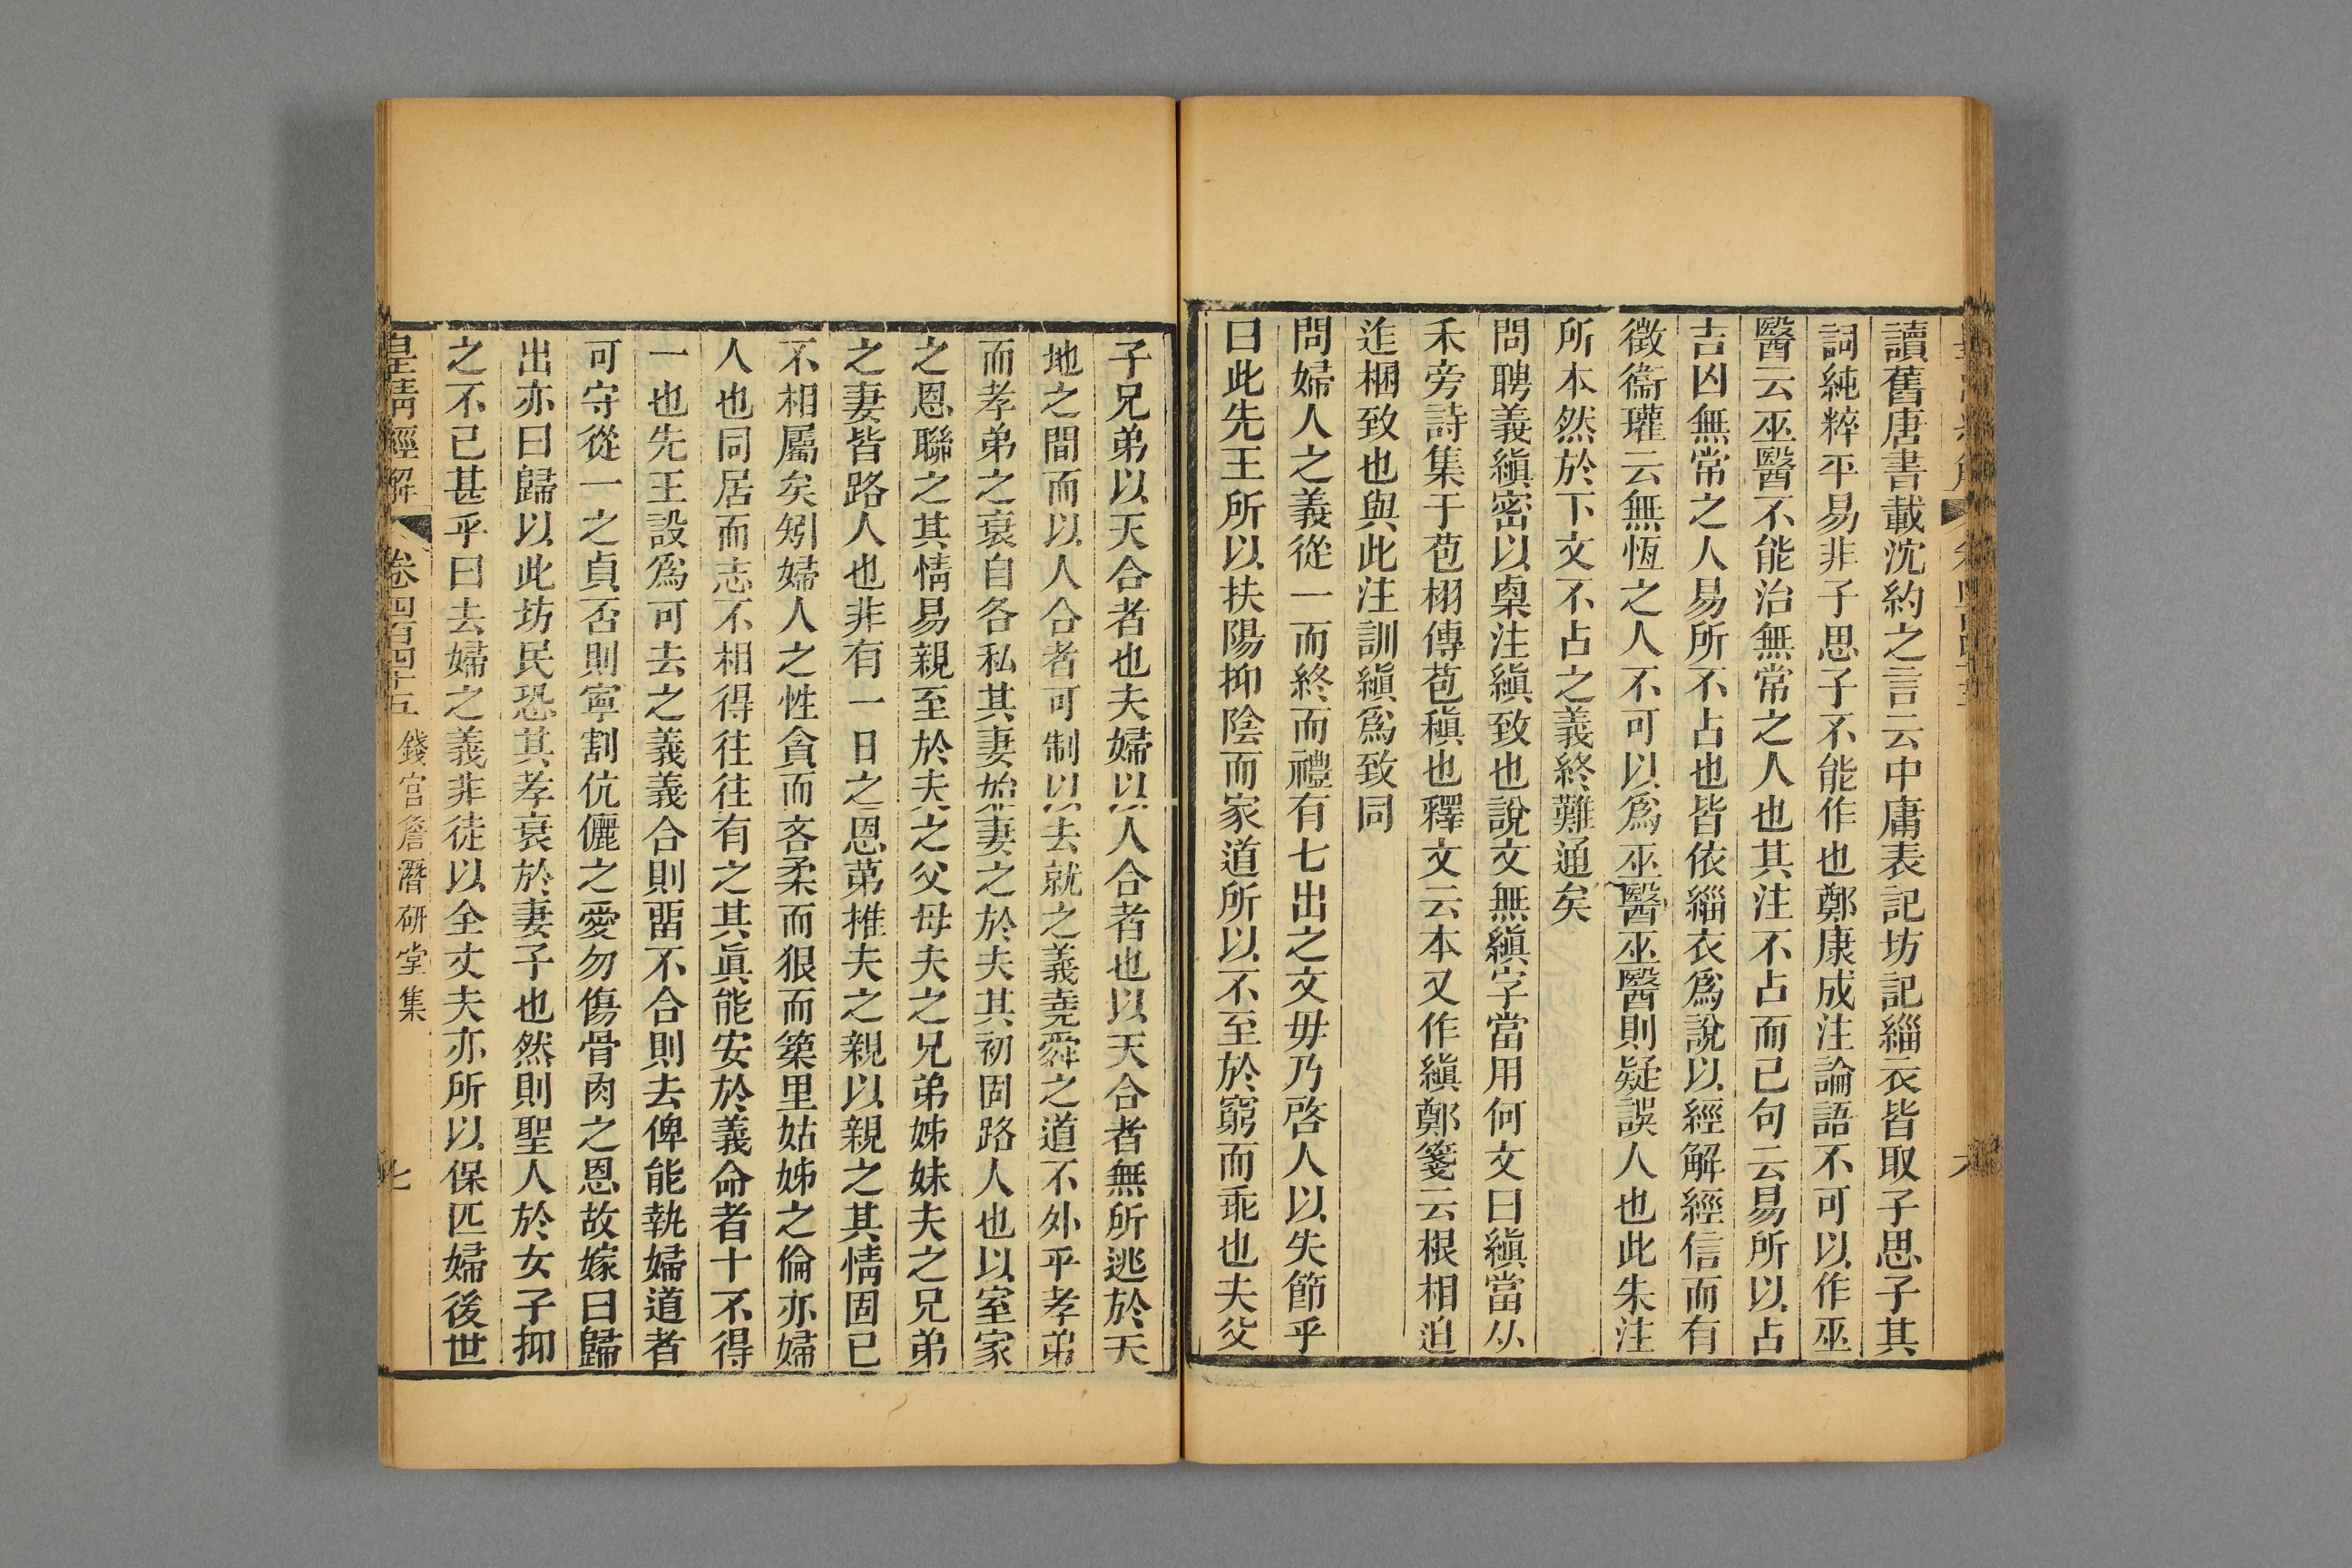 讀舊唐書載沈約之言云中庸表記坊記緇衣皆取子思子其
詞純粹平易非子思子不能作也鄭康成注論語不可以作巫
醫云巫醫不能治無常之人也其注不占而已句云易所以占
吉凶無常之人易所不占也皆依緇衣爲說以經解經信而有
徵衞瓘云無恆之人不可以爲巫醫巫醫則疑誤人也此朱注
所本然於下文不占之義終難通矣
問聘義縝密以㮚注縝致也說文無縝字當用何文曰縝當从
禾旁詩集于苞栩傳苞稹也釋文云本又作縝鄭箋云根相迫
迮梱致也與此注訓縝爲致同
問婦人之義從一而終而禮有七出之文毋乃啓人以失節乎
曰此先王所以扶陽抑陰而家道所以不至於窮而乖也夫父
子兄弟以天合者也夫婦以人合者也以天合者無所逃於天
地之間而以人合者可制以去就之義堯舜之道不外乎孝弟
而孝弟之衰自各私其妻始妻之於夫其初固路人也以室家
之恩聯之其情易親至於夫之父母夫之兄弟姊妹夫之兄弟
之妻皆路人也非有一日之恩苐推夫之親以親之其情固已
不相屬矣矧婦人之性貪而吝柔而狠而築里姑姊之倫亦婦
人也同居而志不相得往往有之其眞能安於義命者十不得
一也先王設爲可去之義義合則畱不合則去俾能執婦道者
可守從一之貞否則寧割伉儷之愛勿傷骨肉之恩故嫁曰歸
出亦曰歸以此坊民恐其孝衰於妻子也然則聖人於女子抑
之不已甚乎曰去婦之義非徒以全丈夫亦所以保匹婦後世
皇淸經解 卷四百四十五 錢宮詹潛研堂集 七